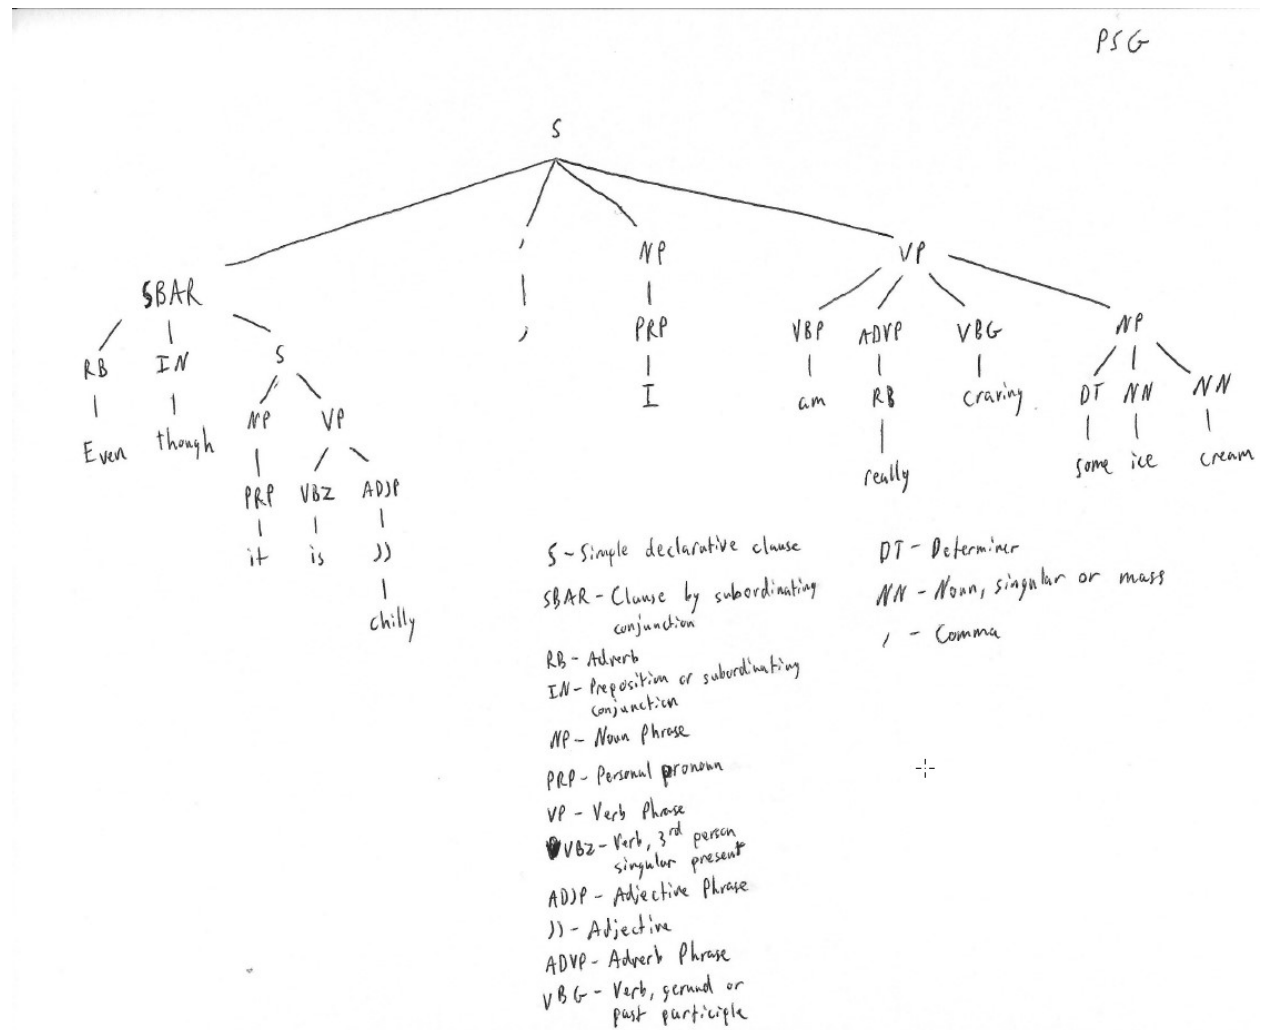 PSG
S
, NP VP
SBAR
RB IN S , PRP VBP ADVP VBG NP
Even though NP VP I am RB craving DT NN NN
really some ice cream
PRP VBZ ADJP
it is JJ
chilly
S - Simple declarative clause
SBAR - Clause by subordinating
conjunction
RB - Adverb
IN - Preposition or subordinating
conjunction
NP - Noun Phrase
PRP - Personal pronoun
VP - Verb Phrase
VBZ - Verb, 3rd person
singular present
ADJP - Adjective Phrase
JJ - Adjective
ADVP - Adverb Phrase
VBG - Verb, gerund or
past participle
DT - Determiner
NN - Noun, singular or mass
, - Comma